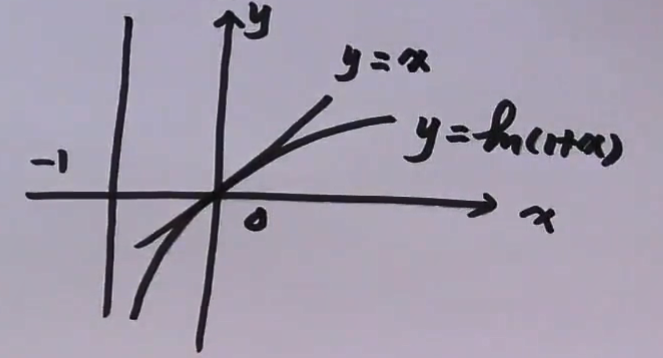 y
y = x
y = ln(1+x)
-1
0
x